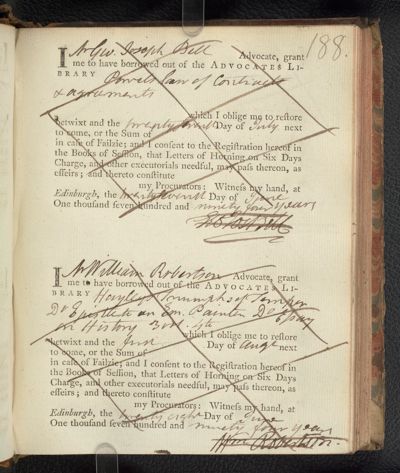 188.
I Mr Geo. Joseph Bell Advocate, grant
me to have borrowed out of the ADVOCATES LI-
BRARY Powels law of Contracts
& agreements
which I oblige me to reſtore
betwixt and the twenty Day of July next
to come, or the Sum of
in caſe of Failzie; and I conſent to the Regiſtration hereof in
the Books of Seſſion, that Letters of Horning on Six Days
Charge, and other executorials needful, may paſs thereon, as
effeirs; and thereto conſtitute
my Procurators: Witneſs my hand, at
Edinburgh, the Day of June
One thouſand ſeven hundred and ninety four years
I Mr William Robertson Advocate, grant
me to have borrowed out of the ADVOCATES LI-
BRARY Hayley's Triumphs of Temper
Do Epistle to an Em. Painter Do Essay
on History 3 vol. 4to
which I oblige me to reſtore
betwixt and the first Day of Augt next
to come, or the Sum of
in caſe of Failzie; and I conſent to the Regiſtration hereof in
the Books of Seſſion, that Letters of Horning on Six Days
Charge, and other executorials needful, may paſs thereon, as
effeirs; and thereto conſtitute
my Procurators: Witneſs my hand, at
Edinburgh, the twenty eight Day of June
One thouſand ſeven hundred and ninety four years
Wm Robertson.